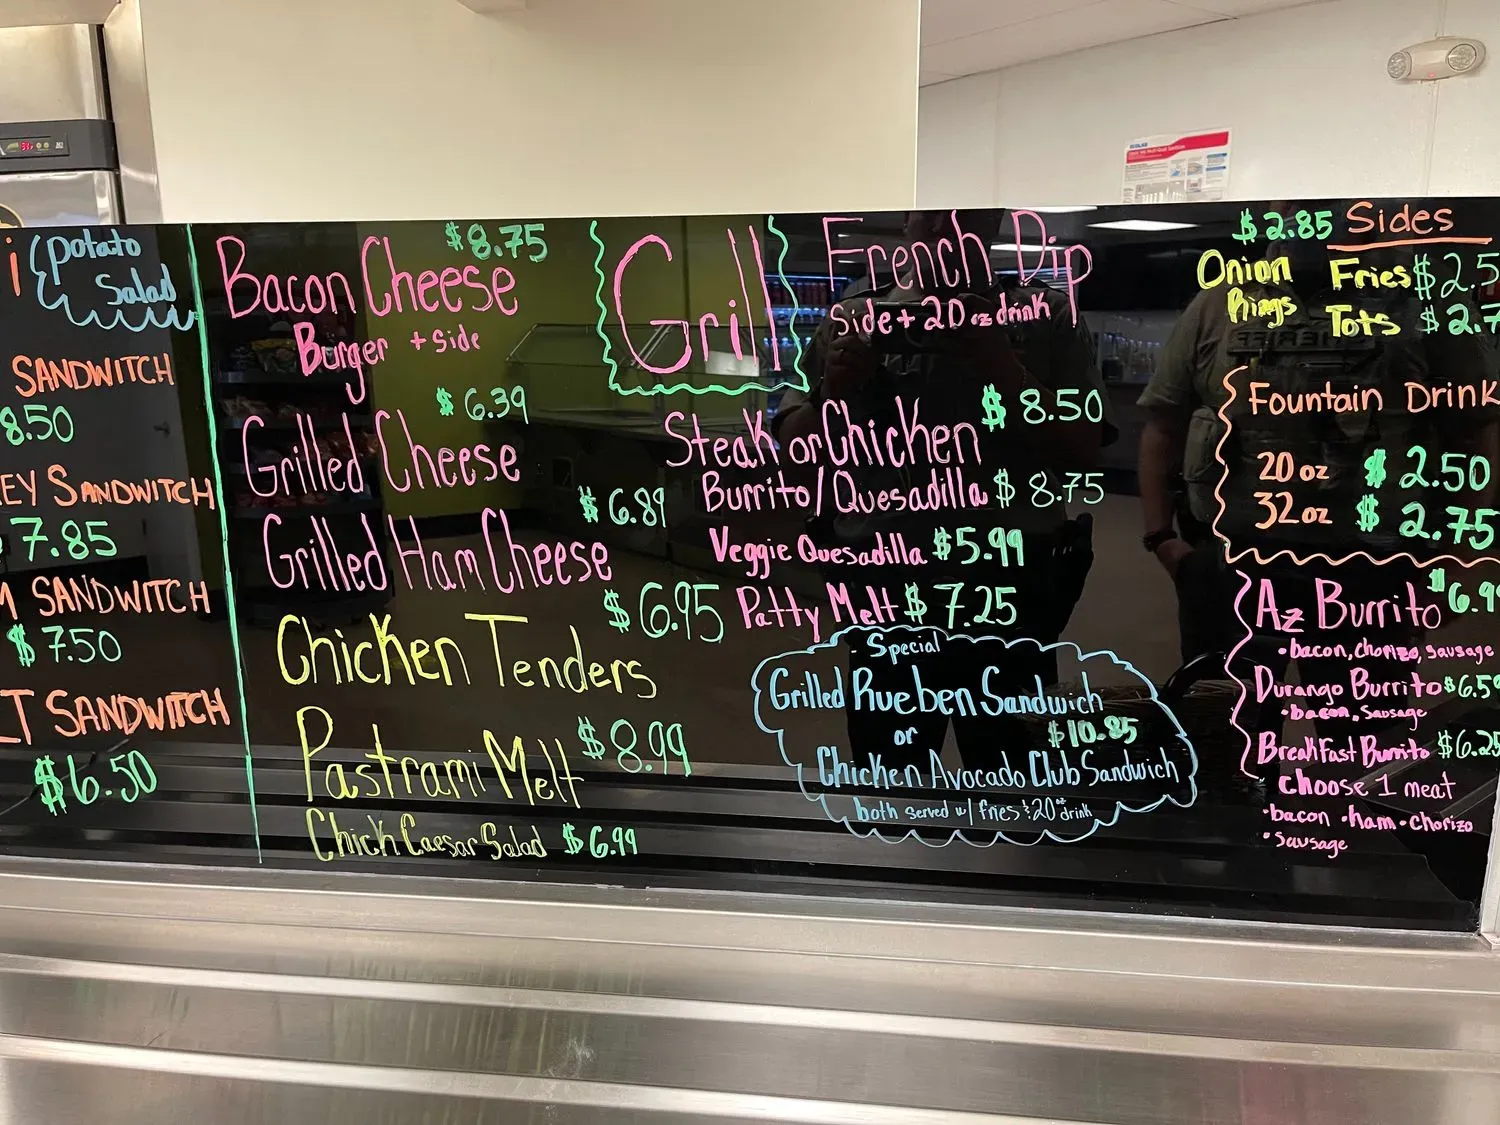 potato
Salad
SANDWITCH
8.50
EY SANDWITCH
7.85
M SANDWITCH
$7.50
T SANDWITCH
$6.50
$8.75
Bacon Cheese
Burger + side
$6.39
Grilled Cheese
$6.89
Grilled Ham Cheese
$6.95
Chicken Tenders
$8.99
Pastrami Melt
Chick Caesar Salad $6.99
Grill
French Dip
Side + 20 oz drink
$8.50
Steak or Chicken
Burrito/Quesadilla $8.75
Veggie Quesadilla $5.99
Patty Melt $7.25
- Special
Grilled Rueben Sandwich
or $10.85
Chicken Avocado Club Sandwich
both served w/ fries & 20 oz drink
$2.85 Sides
Onion Rings
Fries $2.5
Tots $2.7
Fountain Drink
20 oz $2.50
32 oz $2.75
Az Burrito $6.9
• bacon, chorizo, sausage
Durango Burrito $6.59
• bacon, sausage
Breakfast Burrito $6.25
choose 1 meat
• bacon • ham • chorizo
• sausage
SHERIFF
ECOLAB